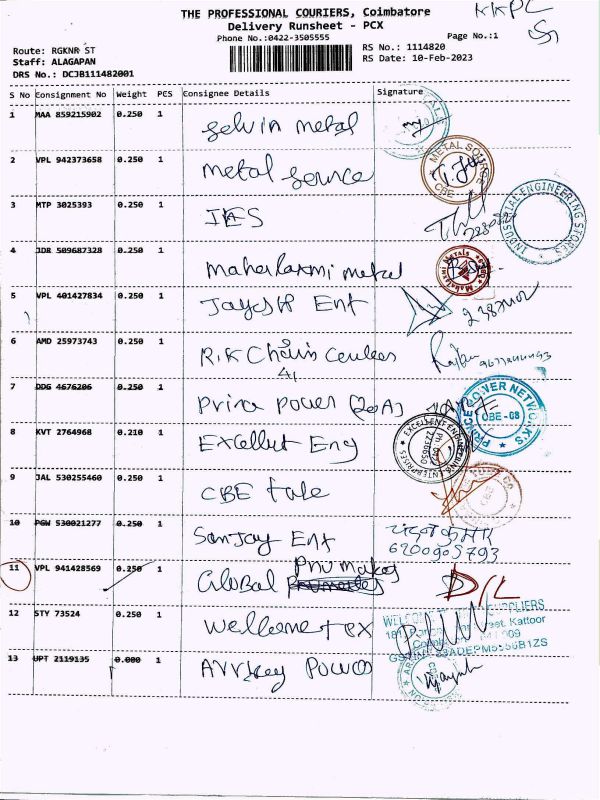 THE PROFESSIONAL COURIERS, Coimbatore
KKPC
Delivery Runsheet - PCX
Phone No.:0422-3505555
Page No.:1
Route: RGKNR ST
RS No.: 1114820
Staff: ALAGAPAN
RS Date: 10-Feb-2023
DRS No.: DCJB111482001
S No Consignment No Weight PCS Consignee Details Signature
1 MAA 859215902 0.250 1 Selvin metal
2 VPL 942373658 0.250 1 metal source METAL SOURCE CBE
3 MTP 3025393 0.250 1 IES INDUSTRIAL ENGINEERING STORES
4 JDR 509687328 0.250 1 Mahalaxmi metal Mahalaxmi Metals
5 VPL 401427834 0.250 1 Jayesh Ent
6 AMD 25973743 0.250 1 R.K Chain Centers
41
7 DDG 4676206 0.250 1 Prince Power PRINCE POWER NETWORK'S CBE-08
8 KVT 2764968 0.210 1 Excellent Eng EXCELLENT ENGINEERING ENTERPRISES
9 JAL 530255460 0.250 1 CBE tale CBE
10 PGW 530021277 0.250 1 Sanjay Ent
6200905793
11 VPL 941428569 0.250 1 Global D/L
12 STY 73524 0.250 1 Wellcome tex WELCOME SUPPLIERS
Street, Kattoor
13 UPT 2119135 0.000 1 Power